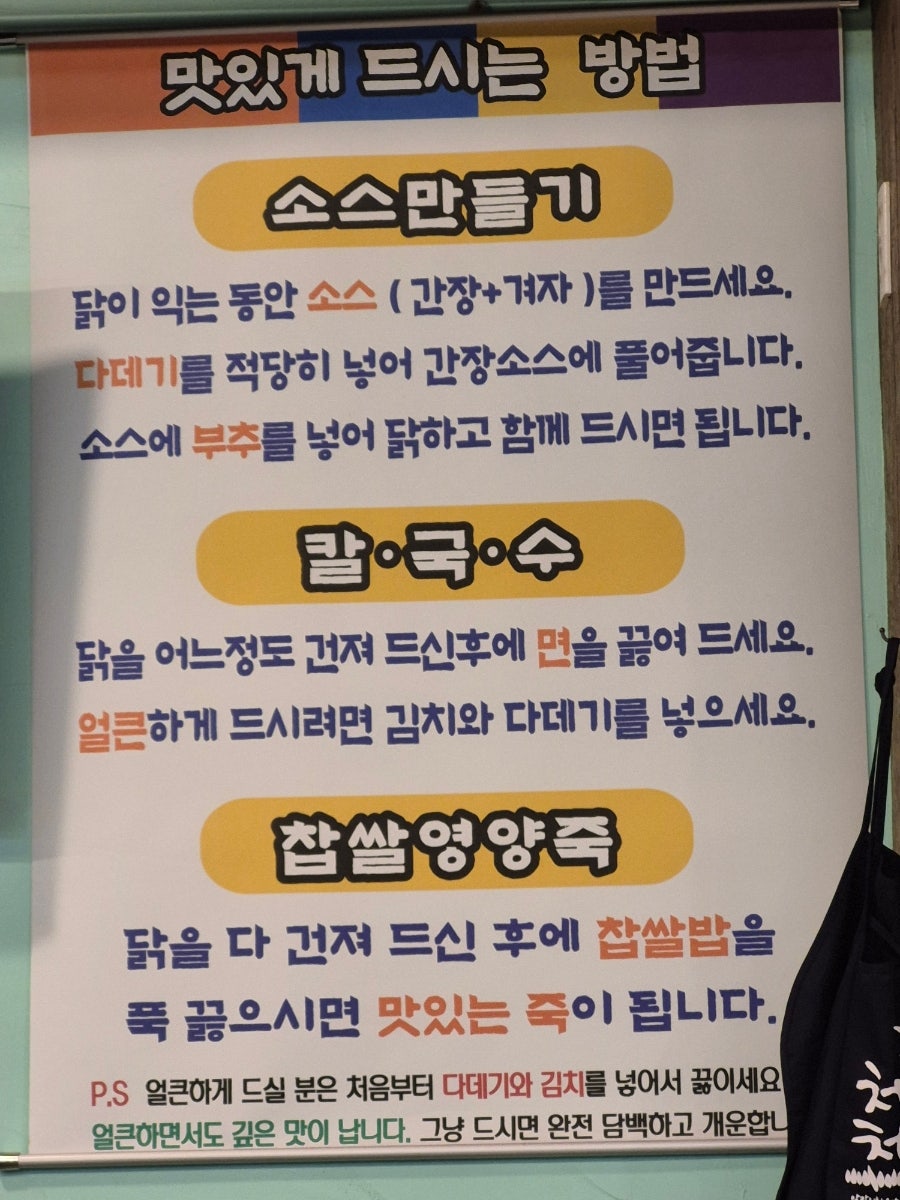 맛있게 드시는 방법
소스만들기
닭이 익는 동안 소스 ( 간장+겨자 )를 만드세요.
다데기를 적당히 넣어 간장소스에 풀어줍니다.
소스에 부추를 넣어 닭하고 함께 드시면 됩니다.
칼•국•수
닭을 어느정도 건져 드신후에 면을 끓여 드세요.
얼큰하게 드시려면 김치와 다데기를 넣으세요.
찹쌀영양죽
닭을 다 건져 드신 후에 찹쌀밥을
푹 끓으시면 맛있는 죽이 됩니다.
P.S 얼큰하게 드실 분은 처음부터 다데기와 김치를 넣어서 끓이세요
얼큰하면서도 깊은 맛이 납니다. 그냥 드시면 완전 담백하고 개운합